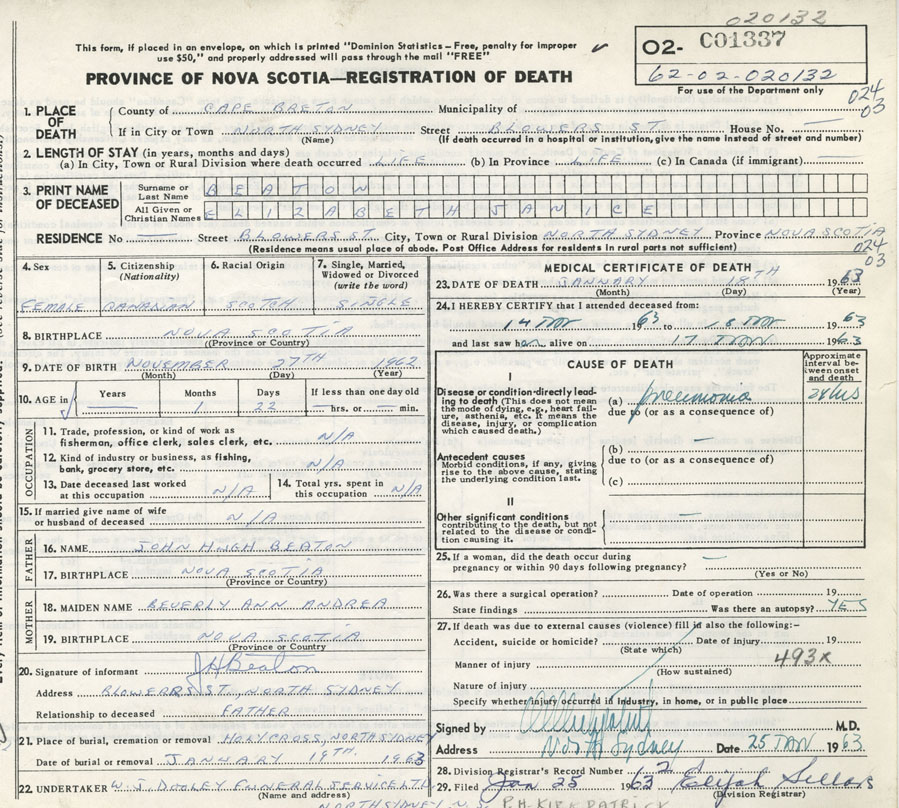 020132
This form, if placed in an envelope, on which is printed "Dominion Statistics – Free, penalty for improper use $50," and properly addressed will pass through the mail "FREE"
O2- C01337
62-02-020132
For use of the Department only
PROVINCE OF NOVA SCOTIA—REGISTRATION OF DEATH
024
03
1. PLACE OF DEATH
County of CAPE BRETON Municipality of
If in City or Town NORTH SYDNEY Street BLOWERS ST House No. —
(Name) (If death occurred in a hospital or institution, give name instead of street and number)
2. LENGTH OF STAY (in years, months and days)
(a) In City, Town or Rural Division where death occurred LIFE (b) In Province LIFE (c) In Canada (if immigrant) —
3. PRINT NAME OF DECEASED
Surname or Last Name BEATON
All Given or Christian Names ELIZABETH JANICE
RESIDENCE No — Street BLOWERS ST. City, Town or Rural Division NORTH SYDNEY Province NOVA SCOTIA
(Residence means usual place of abode. Post Office Address for residents in rural parts not sufficient)
024
03
4. Sex
FEMALE
5. Citizenship (Nationality)
CANADIAN
6. Racial Origin
SCOTCH
7. Single, Married, Widowed or Divorced (write the word)
SINGLE
8. BIRTHPLACE NOVA SCOTIA
(Province or Country)
9. DATE OF BIRTH NOVEMBER 27TH 1962
(Month) (Day) (Year)
10. AGE in
Years Months Days If less than one day old
— 1 22 — hrs. or — min.
OCCUPATION
11. Trade, profession, or kind of work as fisherman, office clerk, sales clerk, etc. N/A
12. Kind of industry or business, as fishing, bank, grocery store, etc. N/A
13. Date deceased last worked at this occupation N/A
14. Total yrs. spent in this occupation N/A
15. If married give name of wife or husband of deceased N/A
FATHER
16. NAME JOHN HUGH BEATON
17. BIRTHPLACE NOVA SCOTIA
(Province or Country)
MOTHER
18. MAIDEN NAME BEVERLY ANN ANDREA
19. BIRTHPLACE NOVA SCOTIA
(Province or Country)
20. Signature of informant JH Beaton
Address BLOWERS ST. NORTH SYDNEY
Relationship to deceased FATHER
21. Place of burial, cremation or removal HOLY CROSS, NORTH SYDNEY
Date of burial or removal JANUARY 19TH. 1963
22. UNDERTAKER W. J. DOOLEY FUNERAL SERVICE LTD
(Name and address)
NORTH SYDNEY N.S.
MEDICAL CERTIFICATE OF DEATH
23. DATE OF DEATH JANUARY 18TH 1963
(Month) (Day) (Year)
24. I HEREBY CERTIFY that I attended deceased from:
14 JAN 1963 to 18 JAN 1963
and last saw her alive on 17 JAN 1963
CAUSE OF DEATH
Approximate interval between onset and death
I
Disease or condition directly leading to death (This does not mean the mode of dying, e.g., heart failure, asthenia, etc. It means the disease, injury, or complication which caused death.)
(a) pneumonia 24 hrs
due to (or as a consequence of)
Antecedent causes
Morbid conditions, if any, giving rise to the above cause, stating the underlying condition last.
(b) —
due to (or as a consequence of)
(c)
II
Other significant conditions contributing to the death, but not related to the disease or condition causing it. —
25. If a woman, did the death occur during pregnancy or within 90 days following pregnancy? —
(Yes or No)
26. Was there a surgical operation? Date of operation 19
State findings Was there an autopsy? YES
27. If death was due to external causes (violence) fill in also the following:-
Accident, suicide or homicide? Date of injury 19
(State which)
Manner of injury 493x
(How sustained)
Nature of injury
Specify whether injury occurred in industry, in home, or in public place
Signed by M.D.
Address North Sydney Date 25 JAN 1963
28. Division Registrar's Record Number 12
29. Filed Jan 25 1963 Elijah Sellars
(Division Registrar)
P.H. KIRKPATRICK